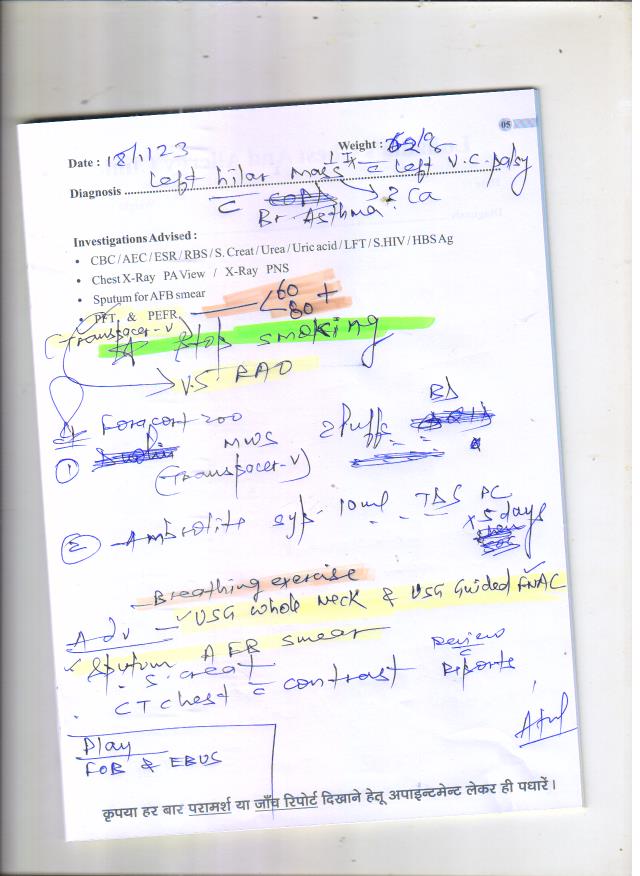 05
Date : 18/1/23 Weight :
Diagnosis Left hilar mass c Left V.C. palsy
c Br Asthma ? Ca
Investigations Advised :
• CBC / AEC / ESR / RBS / S. Creat / Urea / Uric acid / LFT / S.HIV / HBS Ag
• Chest X-Ray PA View / X-Ray PNS
• Sputum for AFB smear
• PFT, & PEFR, < 60 80 +
(Transpacer-V)
stop smoking
V.S. RAO
① Foracort 200 2 Puffs BD
(Transpacer-V)
② Ambrolite syp 10ml TDS PC
x 5 days
- Breathing exercise
Adv - ✓ USG whole neck & USG Guided FNAC ✓
✓ Sputum AFB smear
- S. creat
CT Chest c contrast
Review c Reports
Plan
FOB & EBUS
कृपया हर बार परामर्श या जाँच रिपोर्ट दिखाने हेतू अपाइन्टमेन्ट लेकर ही पधारें।